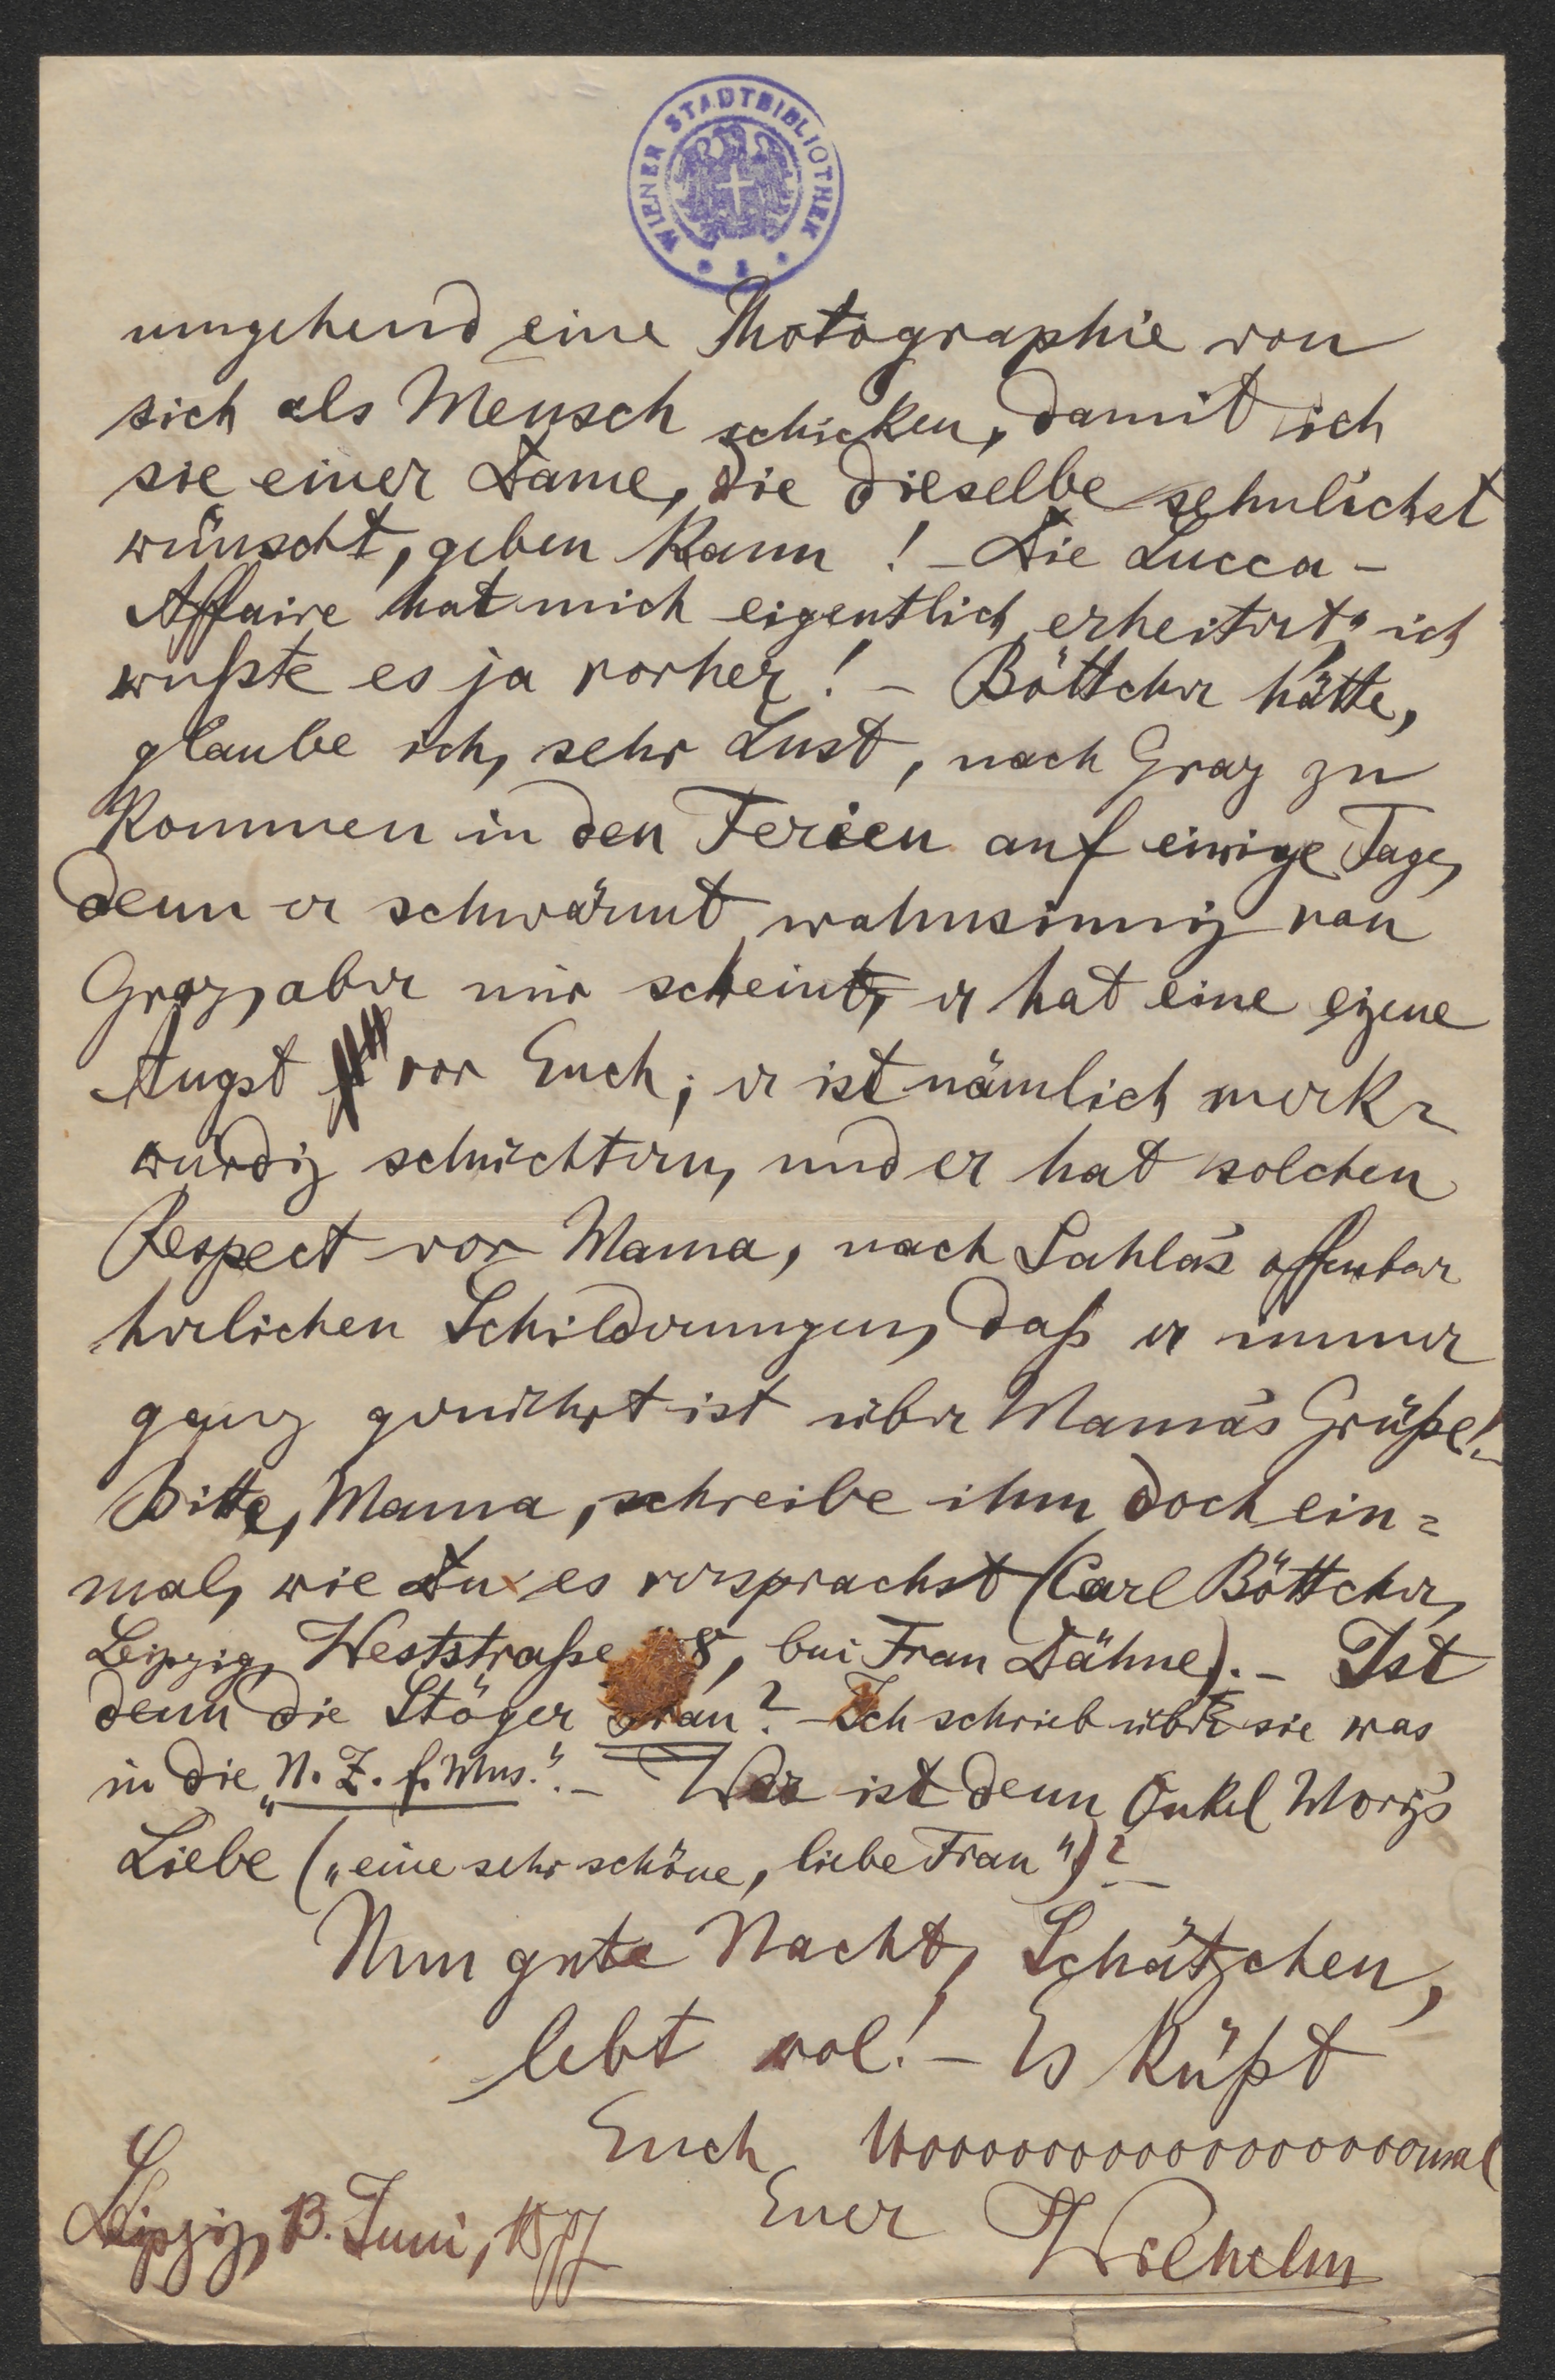 WIENER STADTBIBLIOTHEK
umgehend eine Photographie von
sich als Mensch schicken, damit ich
sie einer Dame, die dieselbe sehnlichst
wünscht, geben kann! – Die Lucca-
Affaire hat mich eigentlich „erheitert“ ich
wußte es ja vorher! – Böttcher hätte,
glaube ich, sehr Lust, nach Graz zu
kommen in den Ferien auf einige Tage,
denn er schwärmt wahnsinnig von
Graz, aber mir scheint, er hat eine eigene
Angst vor Euch; er ist nämlich merk-
würdig schüchtern, und er hat solchen
Respect vor Mama, nach Sahla's offenbar
herrlichen Schilderungen, daß er immer
ganz gerührt ist über Mama's Grüße! –
Bitte, Mama, schreibe ihm doch ein=
mal, wie Du es versprachst (Carl Böttcher,
Leipzig, Weststraße 8, bei Frau Dähne). – Ist
denn die Stöger Frau? – Ich schrieb über sie was
in die „N. Z. f. Mus.“. – Wer ist denn Onkel Mori's
Liebe („eine sehr schöne, liebe Frau“)? –
Nun gute Nacht, Schätzchen,
lebt wol! – Es küßt
Euch 10000000000000000mal
Euer Wilhelm
Leipzig, 13. Juni, 1877